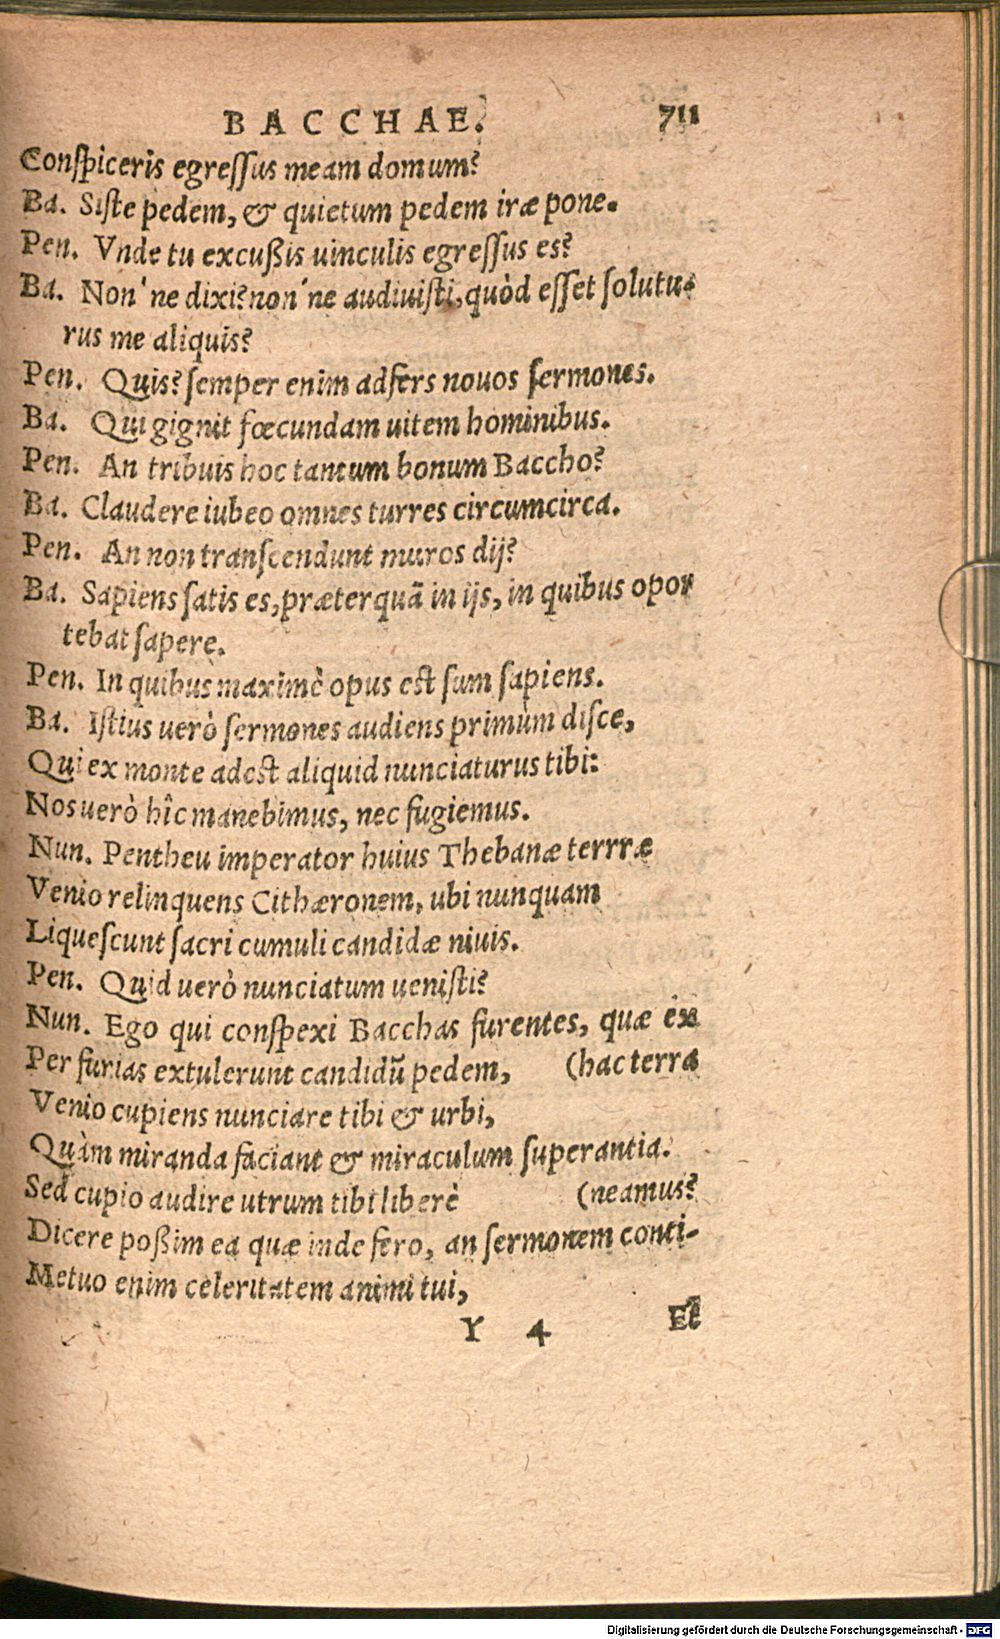 BACCHAE. 711
Conſpiceris egreſſus meam domum?
Ba. Siſte pedem, & quietum pedem iræ pone.
Pen. Vnde tu excußis uinculis egreſſus es?
Ba. Non'ne dixi? non'ne audiuiſti, quòd eſſet ſolutu-
rus me aliquis?
Pen. Quis? ſemper enim adfers nouos ſermones.
Ba. Qui gignit fœcundam uitem hominibus.
Pen. An tribuis hoc tantum bonum Baccho?
Ba. Claudere iubeo omnes turres circumcirca.
Pen. An non tranſcendunt muros dij?
Ba. Sapiens ſatis es, præterquã in ijs, in quibus opor
tebat ſapere.
Pen. In quibus maximè opus eſt ſum ſapiens.
Ba. Iſtius uerò ſermones audiens primùm diſce,
Qui ex monte adeſt aliquid nunciaturus tibi:
Nos uerò hîc manebimus, nec fugiemus.
Nun. Pentheu imperator huius Thebanæ terrræ
Venio relinquens Cithæronem, ubi nunquam
Liqueſcunt ſacri cumuli candidæ niuis.
Pen. Quid uerò nunciatum ueniſti?
Nun. Ego qui conſpexi Bacchas furentes, quæ ex
Per furias extulerunt candidũ pedem, (hac terra
Venio cupiens nunciare tibi & urbi,
Quàm miranda faciant & miraculum ſuperantia.
Sed cupio audire utrum tibi liberè (neamus?
Dicere poßim ea quæ inde fero, an ſermonem conti-
Metuo enim celeritatem animi tui,
Y 4 Et
Digitalisierung gefördert durch die Deutsche Forschungsgemeinschaft - DFG